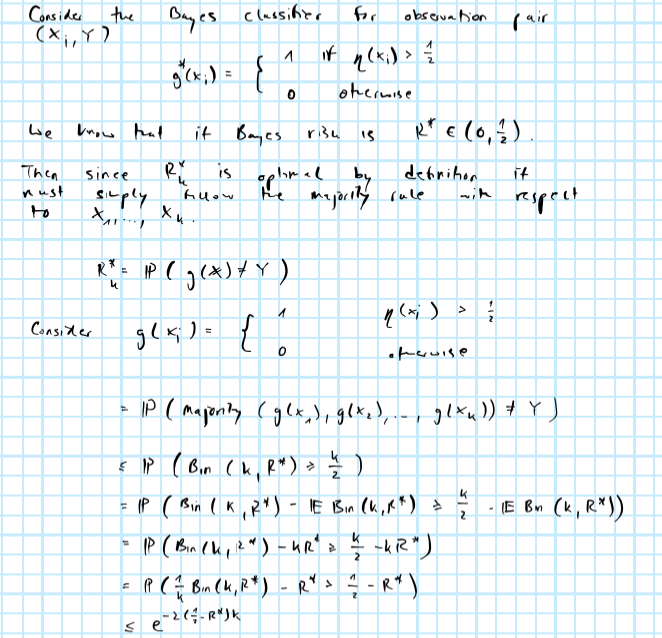 Consider the Bayes classifier for observation pair
(X_i, Y)
g*(x_i) = { 1 if η(x_i) > 1/2
0 otherwise
We know that if Bayes risk is R* ∈ (0, 1/2).
Then since R*_k is optimal by definition it
must simply follow the majority rule with respect
to X_1, ..., X_k.
R*_k = P ( g(X) ≠ Y )
Consider g(x_i) = { 1 η(x_i) > 1/2
0 otherwise
= P ( majority ( g(x_1), g(x_2), ..., g(x_k)) ≠ Y )
≤ P ( Bin (k, R*) ≥ k/2 )
= P ( Bin (k, R*) - E Bin (k, R*) ≥ k/2 - E Bin (k, R*))
= P ( Bin (k, R*) - kR* ≥ k/2 - kR* )
= P ( 1/k Bin(k, R*) - R* > 1/2 - R* )
≤ e^{-2(1/2 - R*)k}